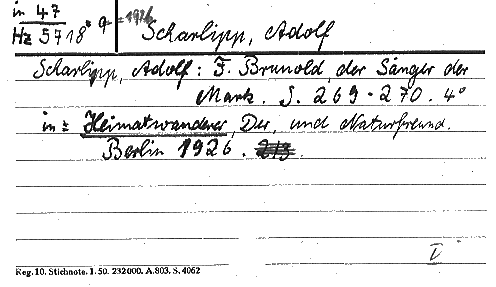 in 47
Hz 5718 q = 1926 Scharlipp, Adolf
Scharlipp, Adolf: F. Brunold, der Sänger der
Mark. S. 269-270. 4°
in: Heimatwanderer, Der, und Naturfreund.
Berlin 1926. 213.
I
Reg. 10. Stichnote. 1. 50. 232000. A. 803. S. 4062